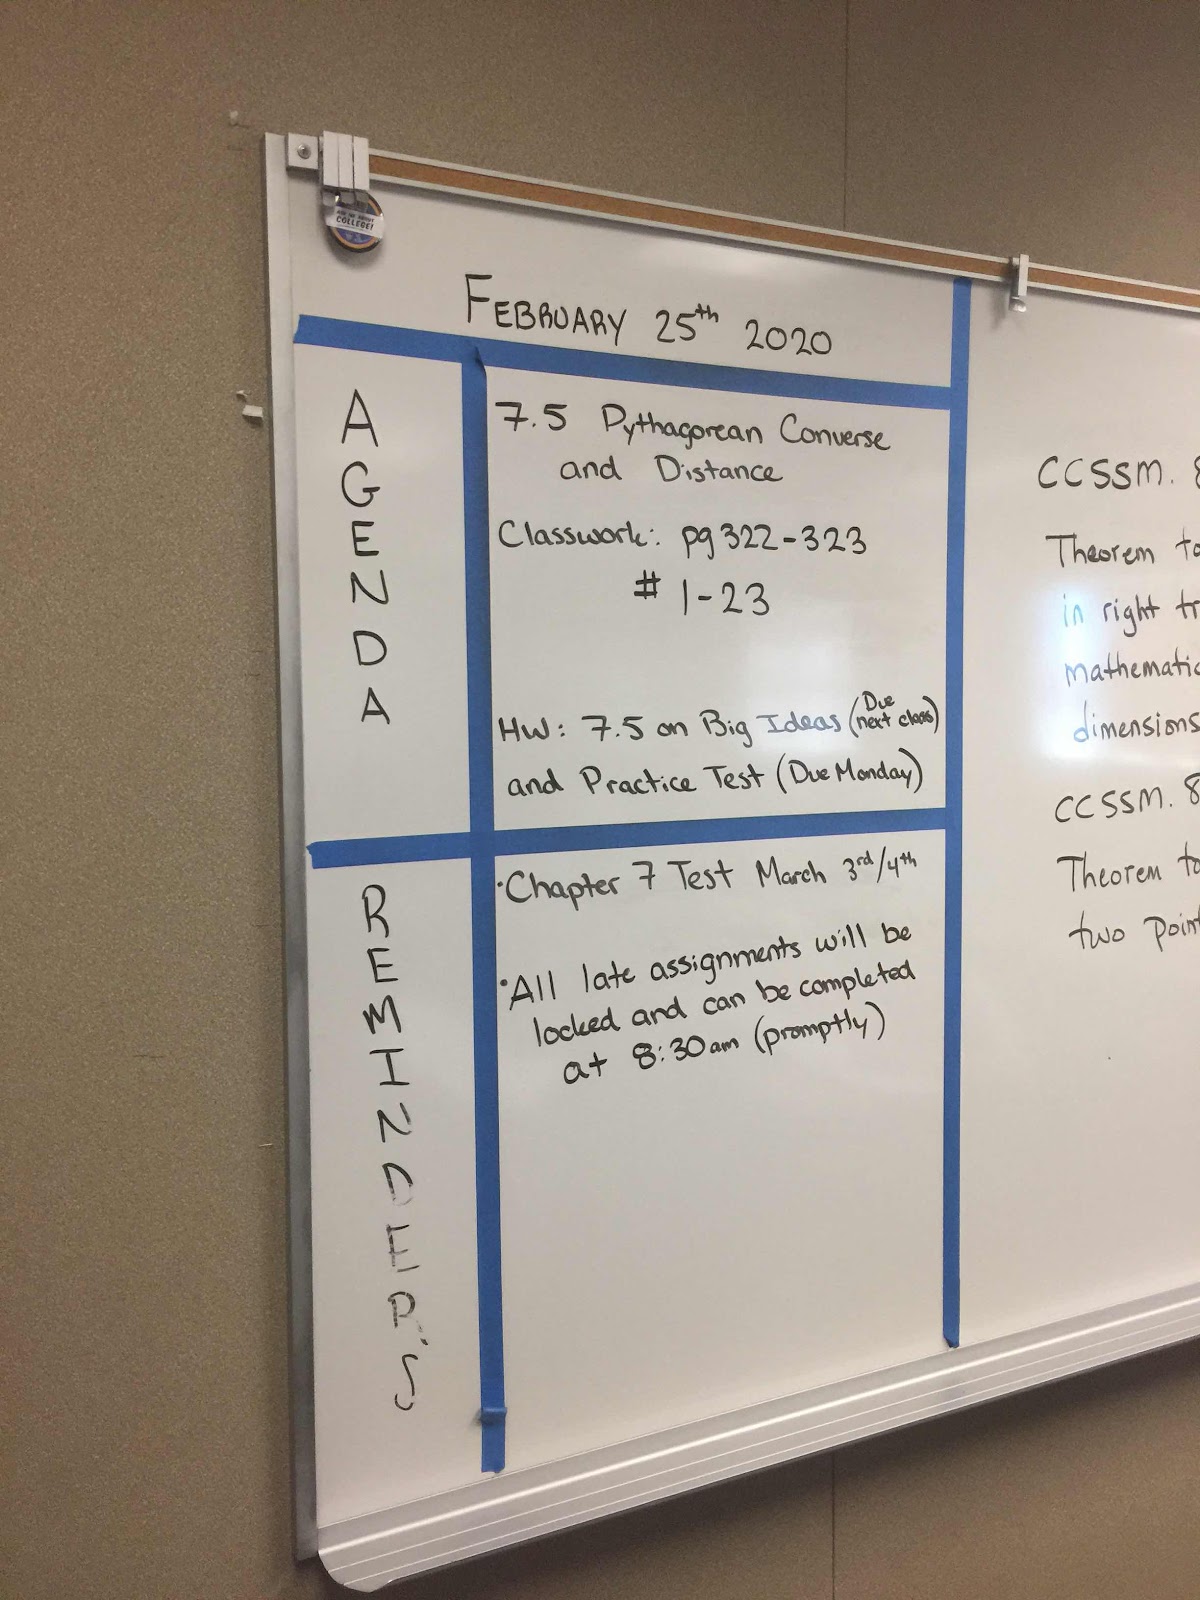 ASK ME ABOUT
COLLEGE!
FEBRUARY 25th 2020
AGENDA
7.5 Pythagorean Converse
and Distance
Classwork: pg 322-323
# 1-23
HW: 7.5 on Big Ideas (Due next class)
and Practice Test (Due Monday)
REMINDER'S
·Chapter 7 Test March 3rd/4th
·All late assignments will be
locked and can be completed
at 8:30am (promptly)
CCSSM. 8
Theorem to
in right tr
mathematic
dimensions
CCSSM. 8
Theorem to
two point